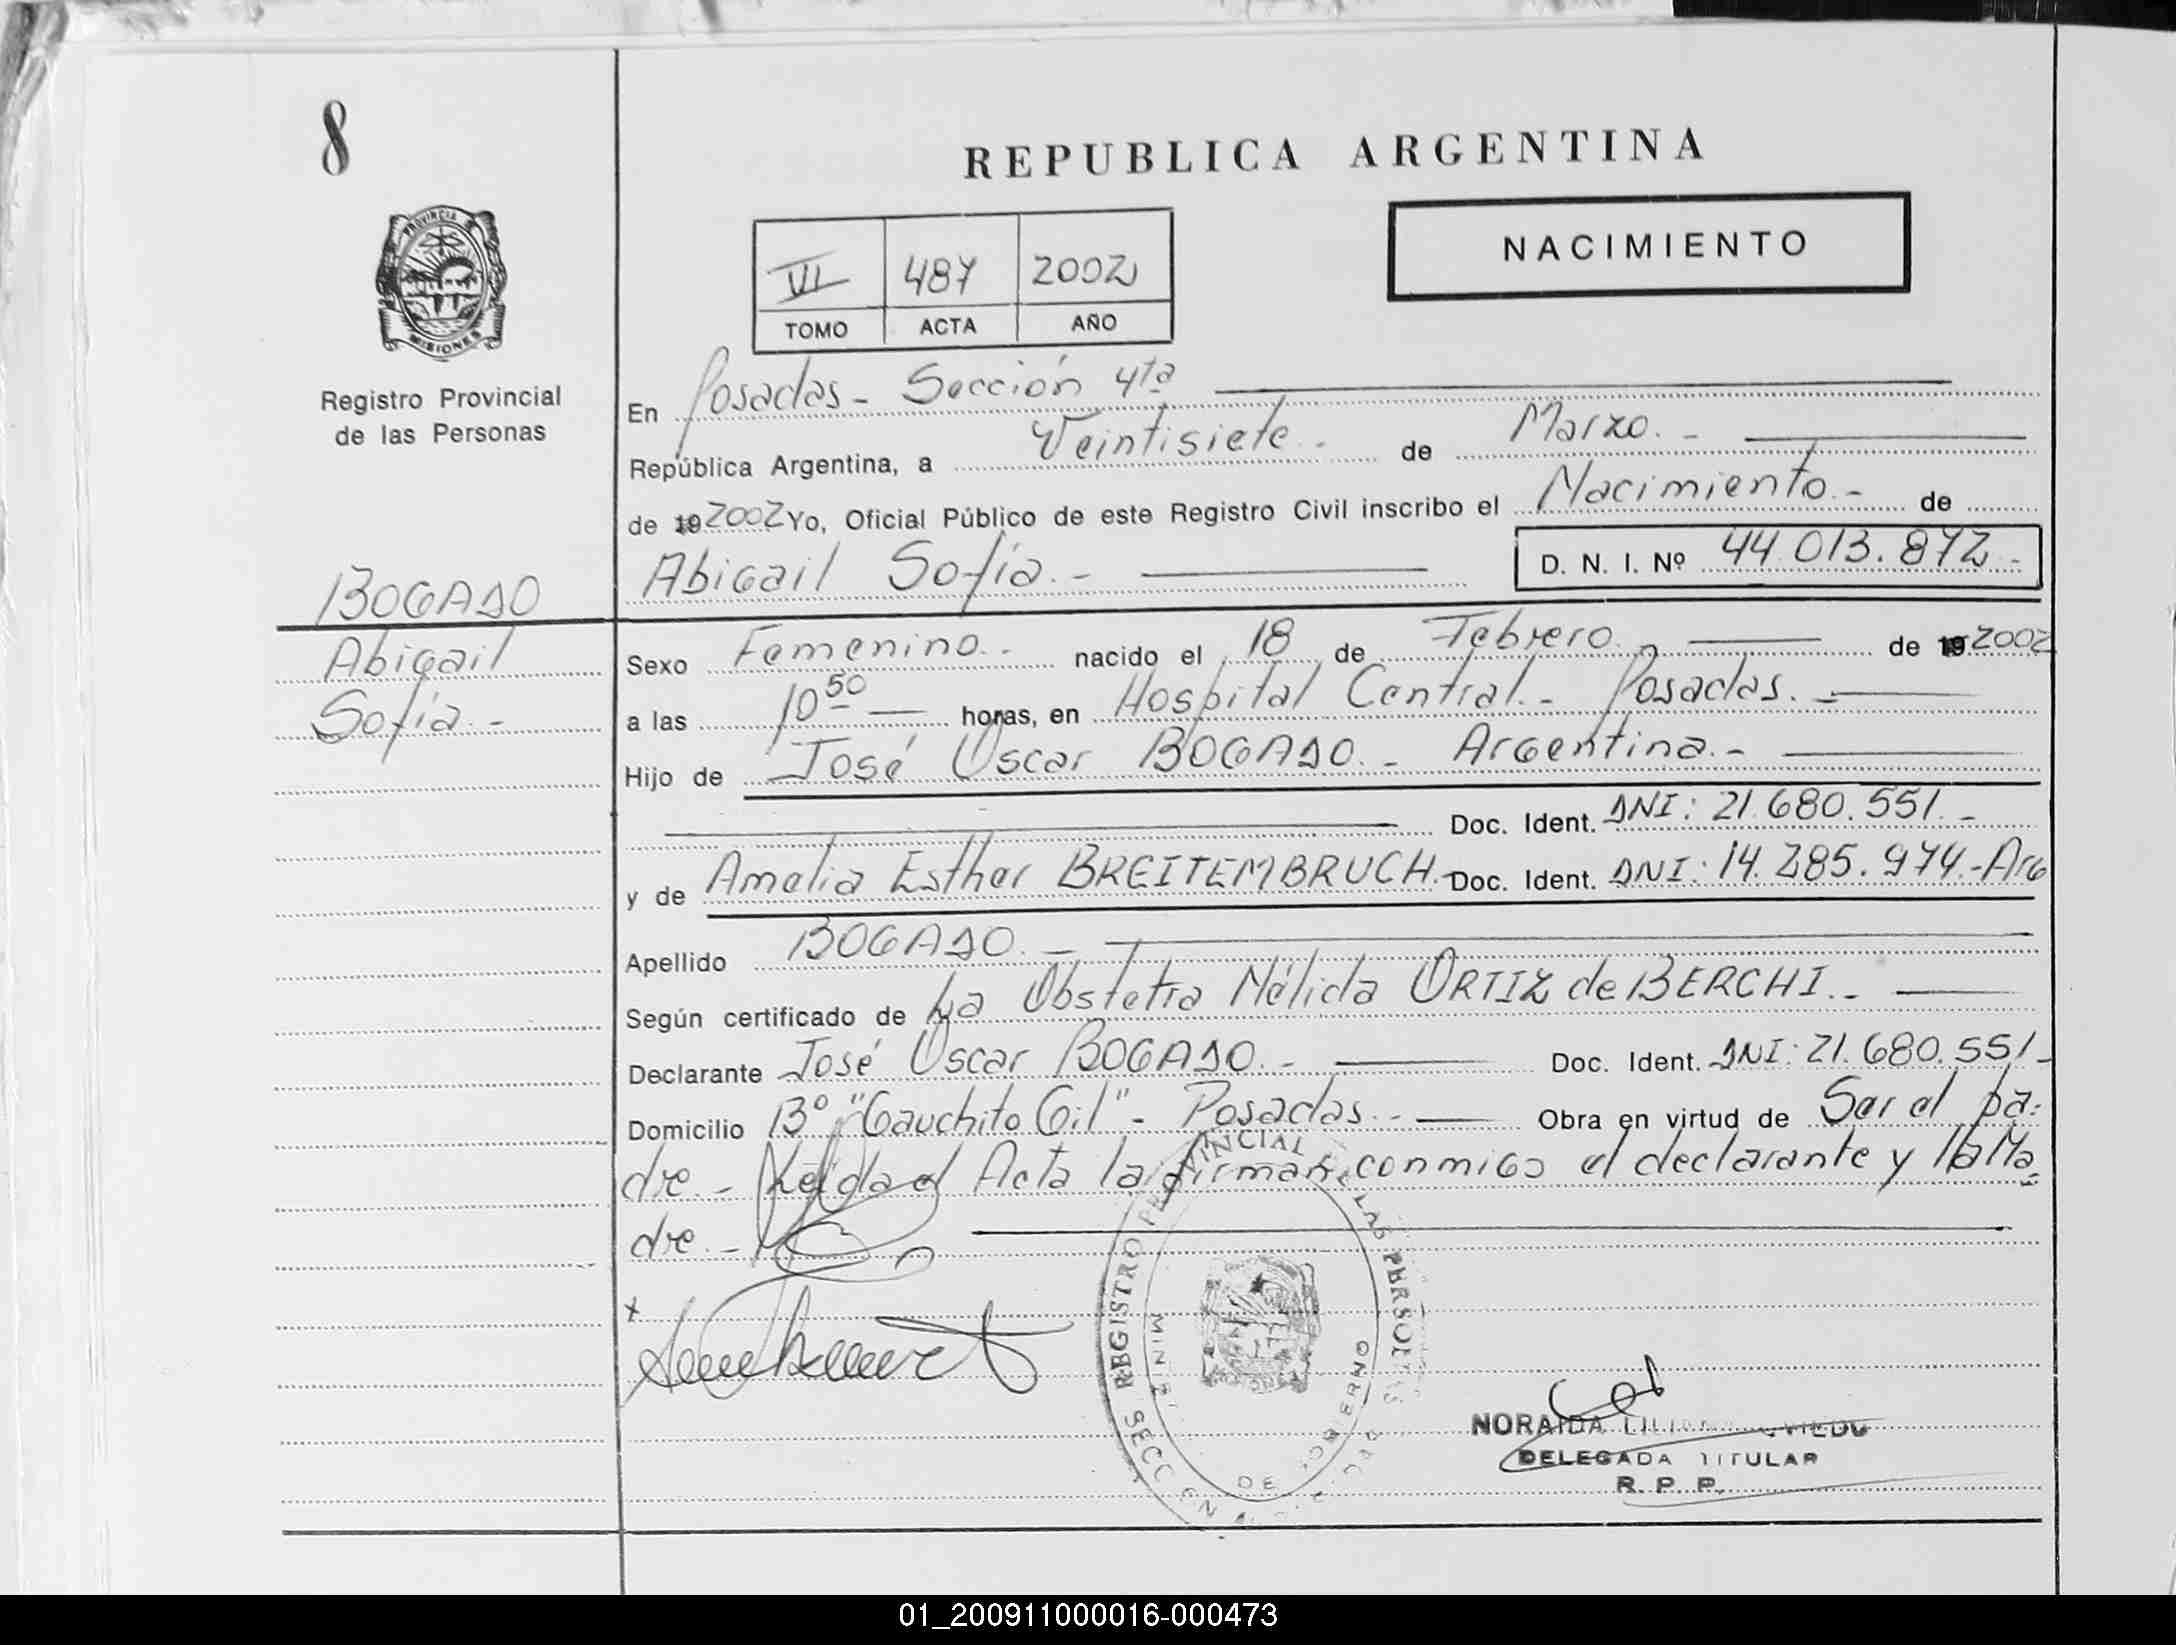 8
REPUBLICA ARGENTINA
NACIMIENTO
VI 487 2002
TOMO ACTA AÑO
PROVINCIA
MISIONES
Registro Provincial
de las Personas
En Posadas - Sección 4ta
República Argentina, a Veintisiete.- de Marzo.-
de 19 2002 Yo, Oficial Público de este Registro Civil inscribo el Nacimiento.- de
Abigail Sofía.- D. N. I. Nº 44.013.872.-
BOGADO
Abigail
Sofía.-
Sexo Femenino.- nacido el 18 de Febrero.- de 19 2002
a las 10 50 horas, en Hospital Central.- Posadas.-
Hijo de José Oscar BOGADO.- Argentina.-
Doc. Ident. DNI: 21.680.551.-
y de Amelia Esther BREITEMBRUCH.- Doc. Ident. DNI: 14.285.974.-Arg
Apellido BOGADO.-
Según certificado de La Obstetra Nélida ORTIZ de BERCHI.-
Declarante José Oscar BOGADO.- Doc. Ident. DNI: 21.680.551-
Domicilio Bº "Gauchito Gil"- Posadas.- Obra en virtud de Ser el pa-
dre.- Leída el Acta la firman conmigo el declarante y la Ma-
dre.-
x
REGISTRO PROVINCIAL LAS PERSONAS
DE GOBIERNO
NORAIDA
DELEGADA TITULAR
R. P. P.
01_200911000016-000473